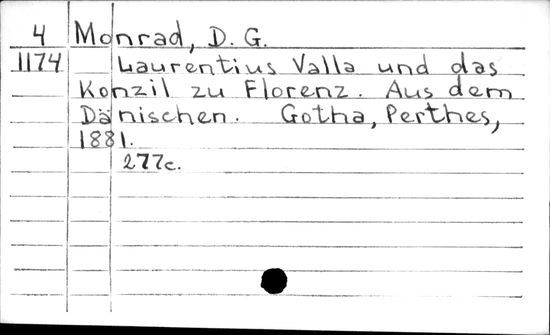 4 Monrad, D. G.
1174 Laurentius Valla und das
Konzil zu Florenz. Aus dem
Dänischen. Gotha, Perthes,
1881.
277c.